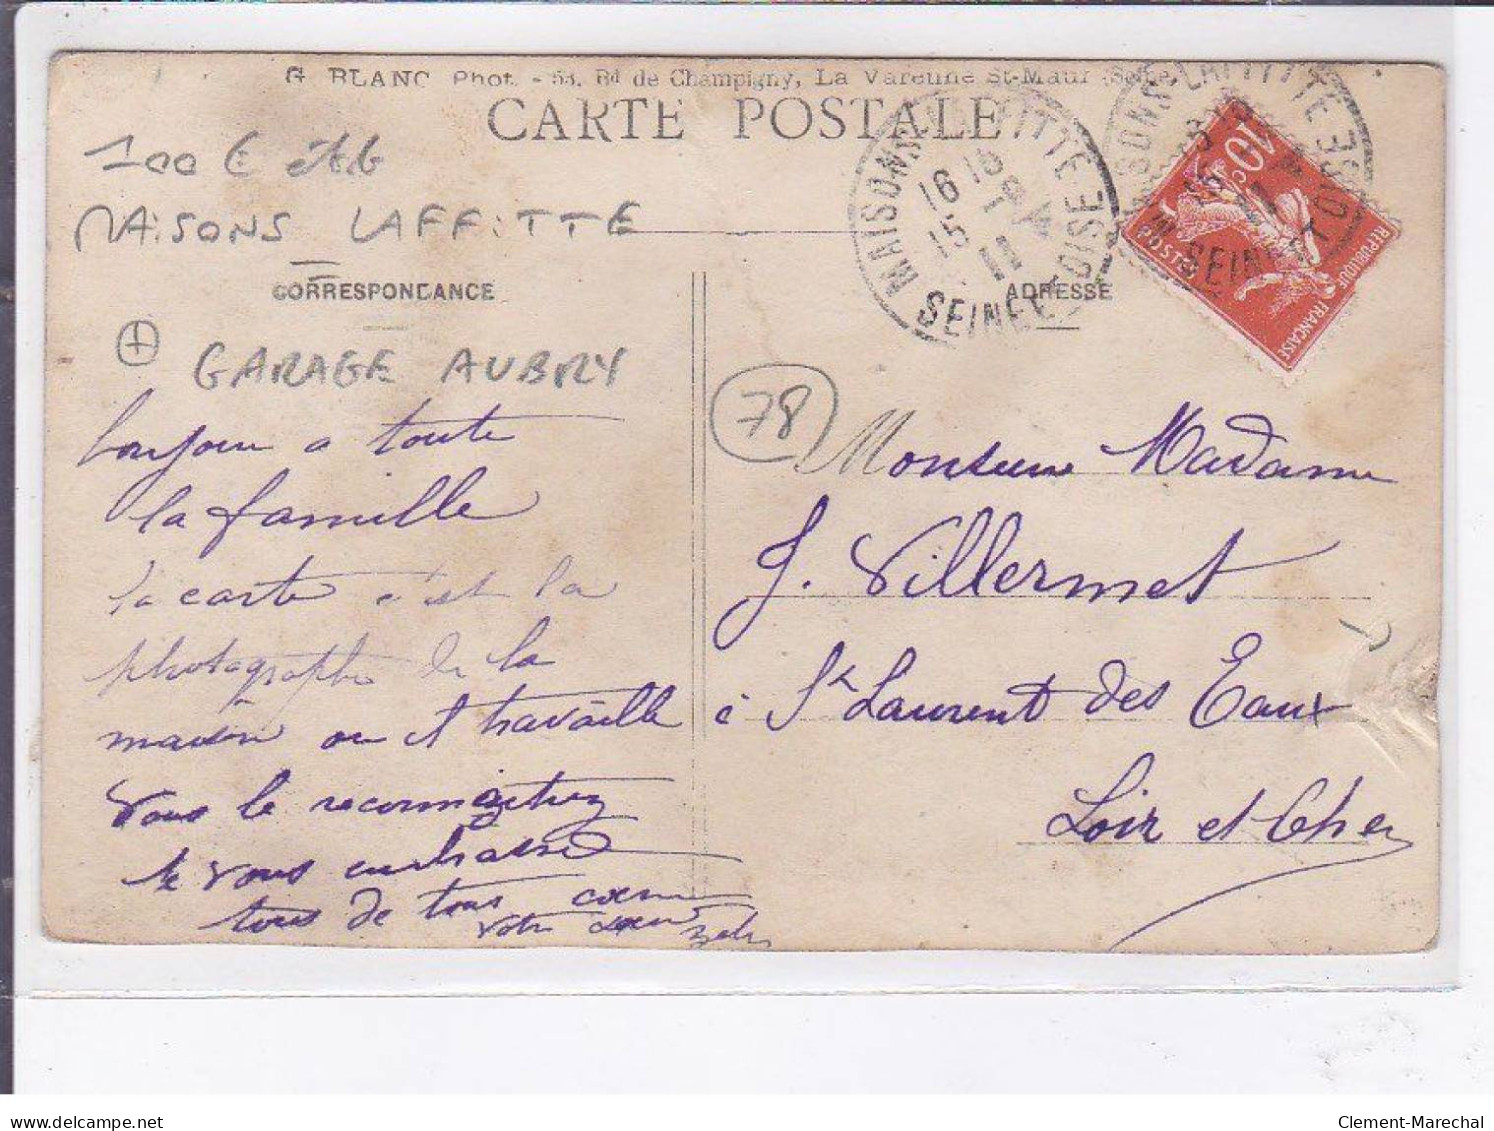 G. BLANC Phot. - 53, Bd de Champigny, La Varenne St-Maur (Seine)
CARTE POSTALE
100 €
MAISONS LAFFITTE
CORRESPONDANCE
ADRESSE
MAISONS-LAFFITTE
16 15
15 - 1
11
SEINE ET OISE
MAISONS-LAFFITTE
SEINE ET OISE
10c
POSTES
REPUBLIQUE FRANÇAISE
GARAGE AUBRY
78
bonjour a toute
la famille
la carte c'est la
photographie de la
maison ou il travaille
vous le reconnaitrez
je vous embrasse
tous de tous coeur
votre soeur
Monsieur Madame
J. Villermet
à St Laurent des Eaux
Loir et Cher
Clement-Marechal
delcampe.net